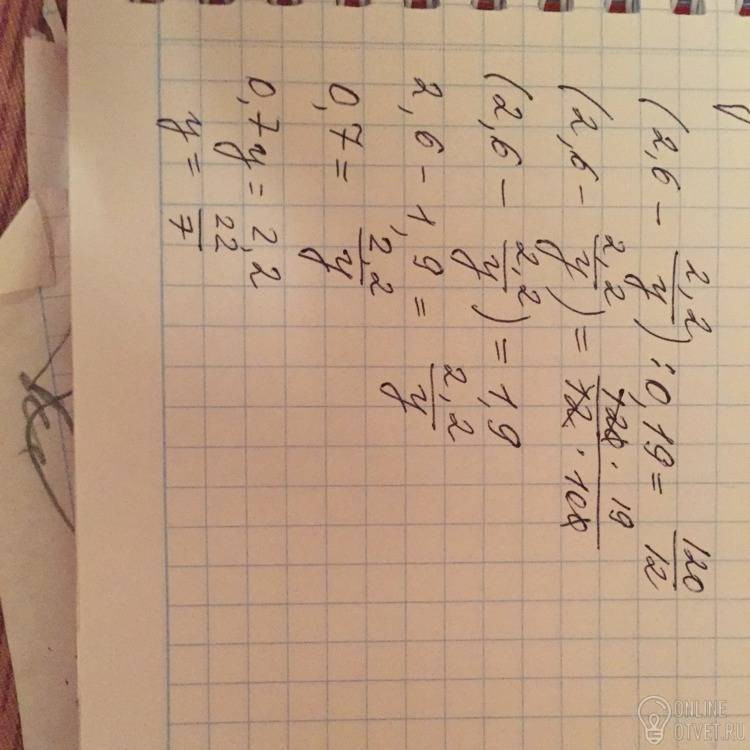 (2,6 - 2,2/y) : 0,19 = 120/12
(2,6 - 2,2/y) = 120 · 19/12 · 100
(2,6 - 2,2/y) = 1,9
2,6 - 1,9 = 2,2/y
0,7 = 2,2/y
0,7y = 2,2
y = 22/7
ONLINE
OTVET.RU